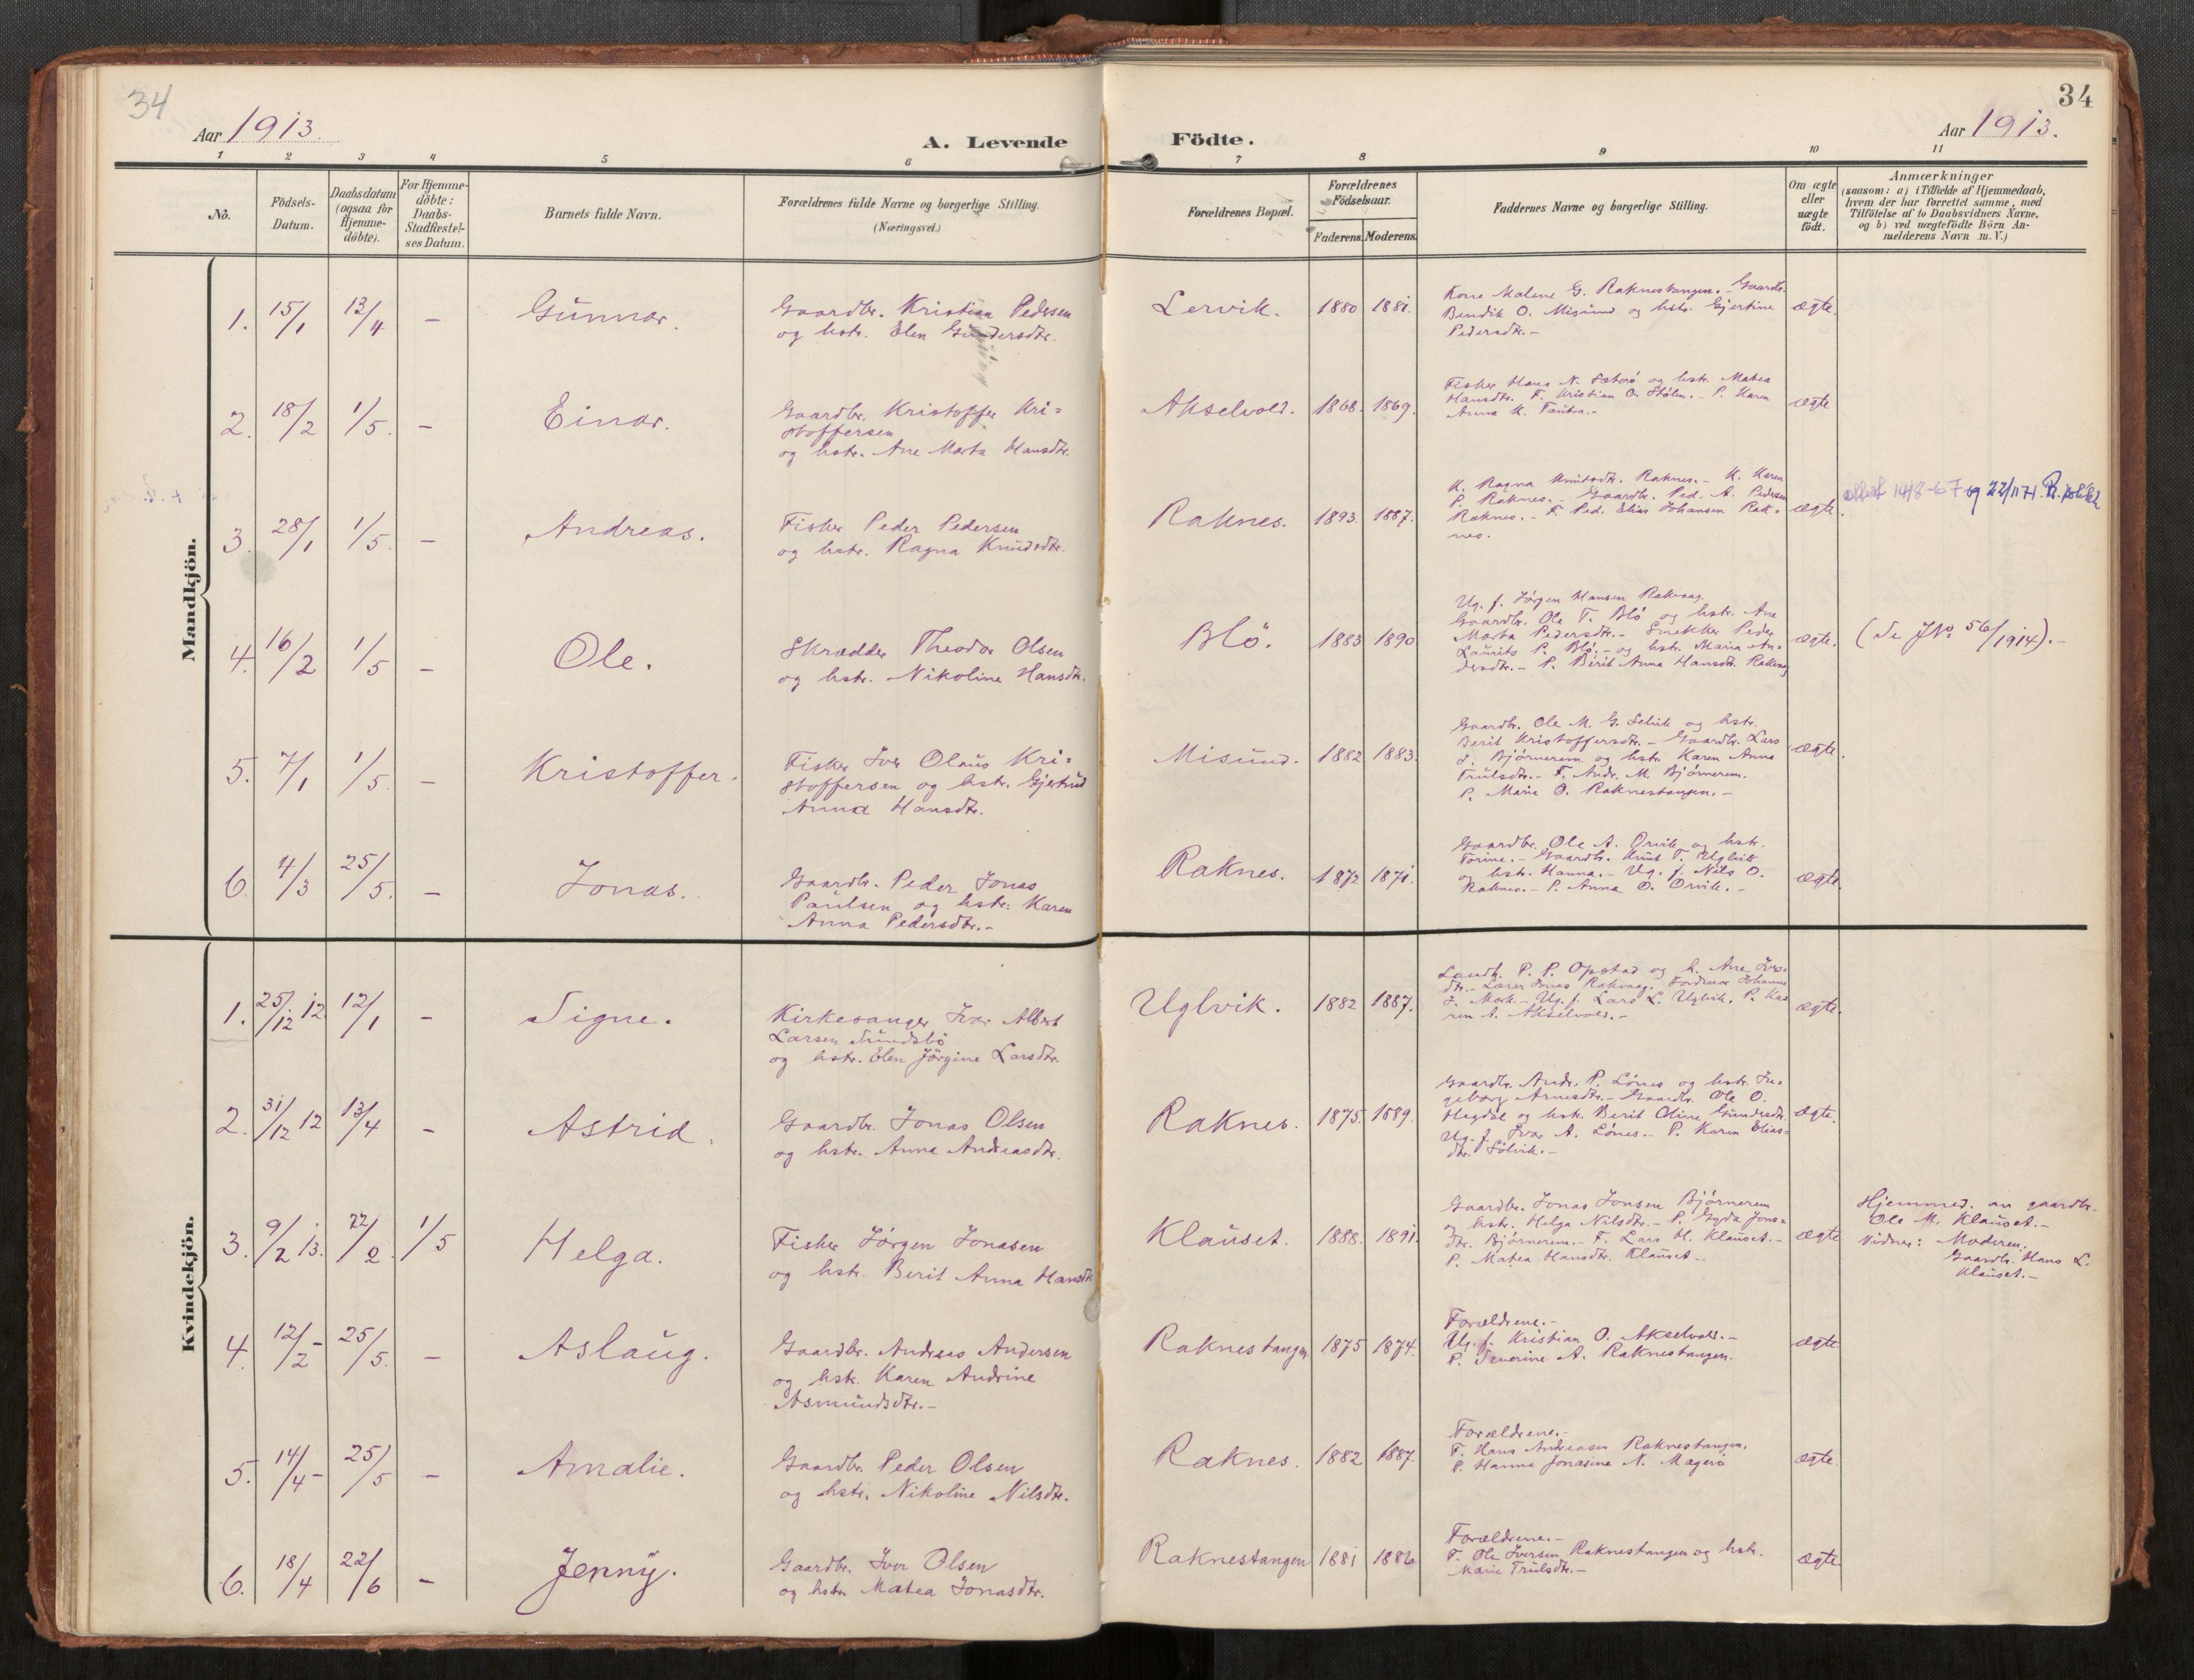 34
34
Aar 1913.
A. Levende Födte.
Aar 1913.
1 2 3 4 5 6 7 8 9 10 11
No.
Födsels-
Datum.
Daabsdatum
(ogsaa for
Hjemme-
döbte).
For Hjemme-
döbte:
Daabs-
Stadfæstel-
ses Datum.
Barnets fulde Navn.
Forældrenes fulde Navne og borgerlige Stilling.
(Næringsvei.)
Forældrenes Bopæl.
Forældrenes
Födselsaar.
Faderens. Moderens.
Faddernes Navne og borgerlige Stilling.
Om ægte
eller
uægte
födt.
Anmærkninger
(saasom: a) i Tilfælde af Hjemmedaab,
hvem der har forrettet samme, med
Tilföielse af to Daabsvidners Navne,
og b) ved uægtefödte Börn An-
melderens Navn m. V.)
Mandkjön.
1. 15/1 13/4 – Gunnar.
Gaardbr. Kristian Pedersen
og hstr. Elen Gundersdtr.
Lervik. 1880 1881.
Kone Malene G. Raknestangen. - Gaardb.
Bendik O. Misund og hstr. Gjertine
Pedersdtr. -
ægte.
2. 18/2 1/5. – Einar.
Gaardbr. Kristoffer Kri=
stoffersen
og hstr. Ane Marta Hansdtr.
Akselvold. 1868. 1869.
Fisker Hans N. Sæterø og hstr. Matea
Hansdtr. F. Kristian O. Stølen. - P. Karen
Anna K. Tautra. -
ægte
3. 28/1 1/5. – Andreas.
Fisker Peder Pedersen
og hstr. Ragna Knudsdtr.
Raknes. 1893. 1887.
K. Ragna Knutsdtr. Raknes. - K. Karen
P. Raknes. - Gaardbr. Ped. A. Pedersen
Raknes. - F. Ped. Elias Johansen Rak=
nes.
ægte.
14/8-67 og 22/11 71.
4. 16/2 1/5 – Ole.
Skrædder Theodor Olsen
og hstr. Nikoline Hansdtr.
Blø. 1883 1890
Ug. f. Jørgen Hansen Rakvaag.
Gaardbr. Ole T. Blø og hstr. Ane
Marta Pedersdtr. - Snekker Peder
Laurits P. Blø. - og hstr. Maria An=
dersdtr. - P. Berit Anna Hansdtr. Rakvag
ægte.
(Se JNo 56/1914). -
5. 7/1 1/5. – Kristoffer.
Fisker Iver Olaus Kri=
stoffersen og hstr. Gjertrud
Anna Hansdtr.
Misund. 1882 1883.
Gaardbr. Ole M. G. Selvik og hstr.
Berit Kristoffersdtr. - Gaardbr. Lars
J. Bjørnerem og hstr. Karen Anna
Trulsdtr. - F. Andr. M. Bjørnerem.
P. Marie O. Raknestangen. -
ægte.
6. 4/3 25/5. – Jonas.
Gaardb. Peder Jonas
Paulsen og hstr: Karen
Anna Pedersdtr. -
Raknes. 1872 1871.
Gaardbr. Ole A. Orvik og hstr.
Torine. - Gaardb. Knut T. Uglvik
og hstr. Hanna. - Ug. f. Nils O.
Raknes. - P. Anna O. Orvik. -
ægte.
Kvindekjön.
1. 25/12 12 12/1 – Signe.
Kirkesanger Iver Albert
Larsen Sundsbö
og hstr. Elen Jörgine Larsdtr.
Uglvik. 1882 1887.
Landh. P. P. Opstad og h. Ane Ivers=
dtr. - Læser Jonas Rakvaag. Fordums Johannes
J. Mork. - Ug. f. Lars L. Uglvik. P. Ka=
ren A. Akselvold. -
ægte.
2. 31/12 12 13/4 – Astrid.
Gaardbr. Jonas Olsen
og hstr. Anna Andreasdtr.
Raknes. 1875. 1889.
Gaardbr. Andr. P. Lönes og hstr. In=
geborg Arnesdtr. - Gaardbr. Ole O.
Hegdal og hstr. Berit Oline Gundersdtr.
Ug. f. Ivar A. Lönes. - P. Karen Elias=
dtr. Sölvik. -
ægte.
3. 9/2 13. 22/2. 1/5 Helga.
Fisker Jörgen Jonasen
og hstr. Berit Anna Hansdtr
Klauset. 1888. 1891.
Gaardbr. Jonas Jonsen Bjørnerem
og hstr. Helga Nilsdtr. - P. Gyda Jons=
dtr. Bjørnerem. - F. Lars H. Klauset. -
P. Matea Hansdtr. Klauset -
ægte
Hjemmed. av gaardbr.
Ole M. Klauset. -
Vidner: Moderen.
Gaardb. Hans L.
Klauset. -
4. 12/2 - 25/5. – Aslaug.
Gaardbr. Andreas Andersen
og hstr. Karen Andrine
Asmundsdtr. -
Raknestangen 1875 1874.
Forældrene. -
Ug. f. Kristian O. Akselvold. -
P. Severine A. Raknestangen.
ægte.
5. 14/4 - 25/5 – Amalie.
Gaardbr. Peder Olsen
og hstr. Nikoline Nilsdtr.
Raknes. 1882 1887.
Forældrene. -
F. Hans Andreasen Raknestangen.
P. Hanna Jonasine N. Magerö
ægte.
6. 18/4 22/6 – Jenny.
Gaardbr. Iver Olsen
og hstr. Matea Jonasdtr.
Raknestangen 1881 1886.
Forældrene. -
F. Ole Iversen Raknestangen og hstr.
Marie Trulsdtr. -
ægte